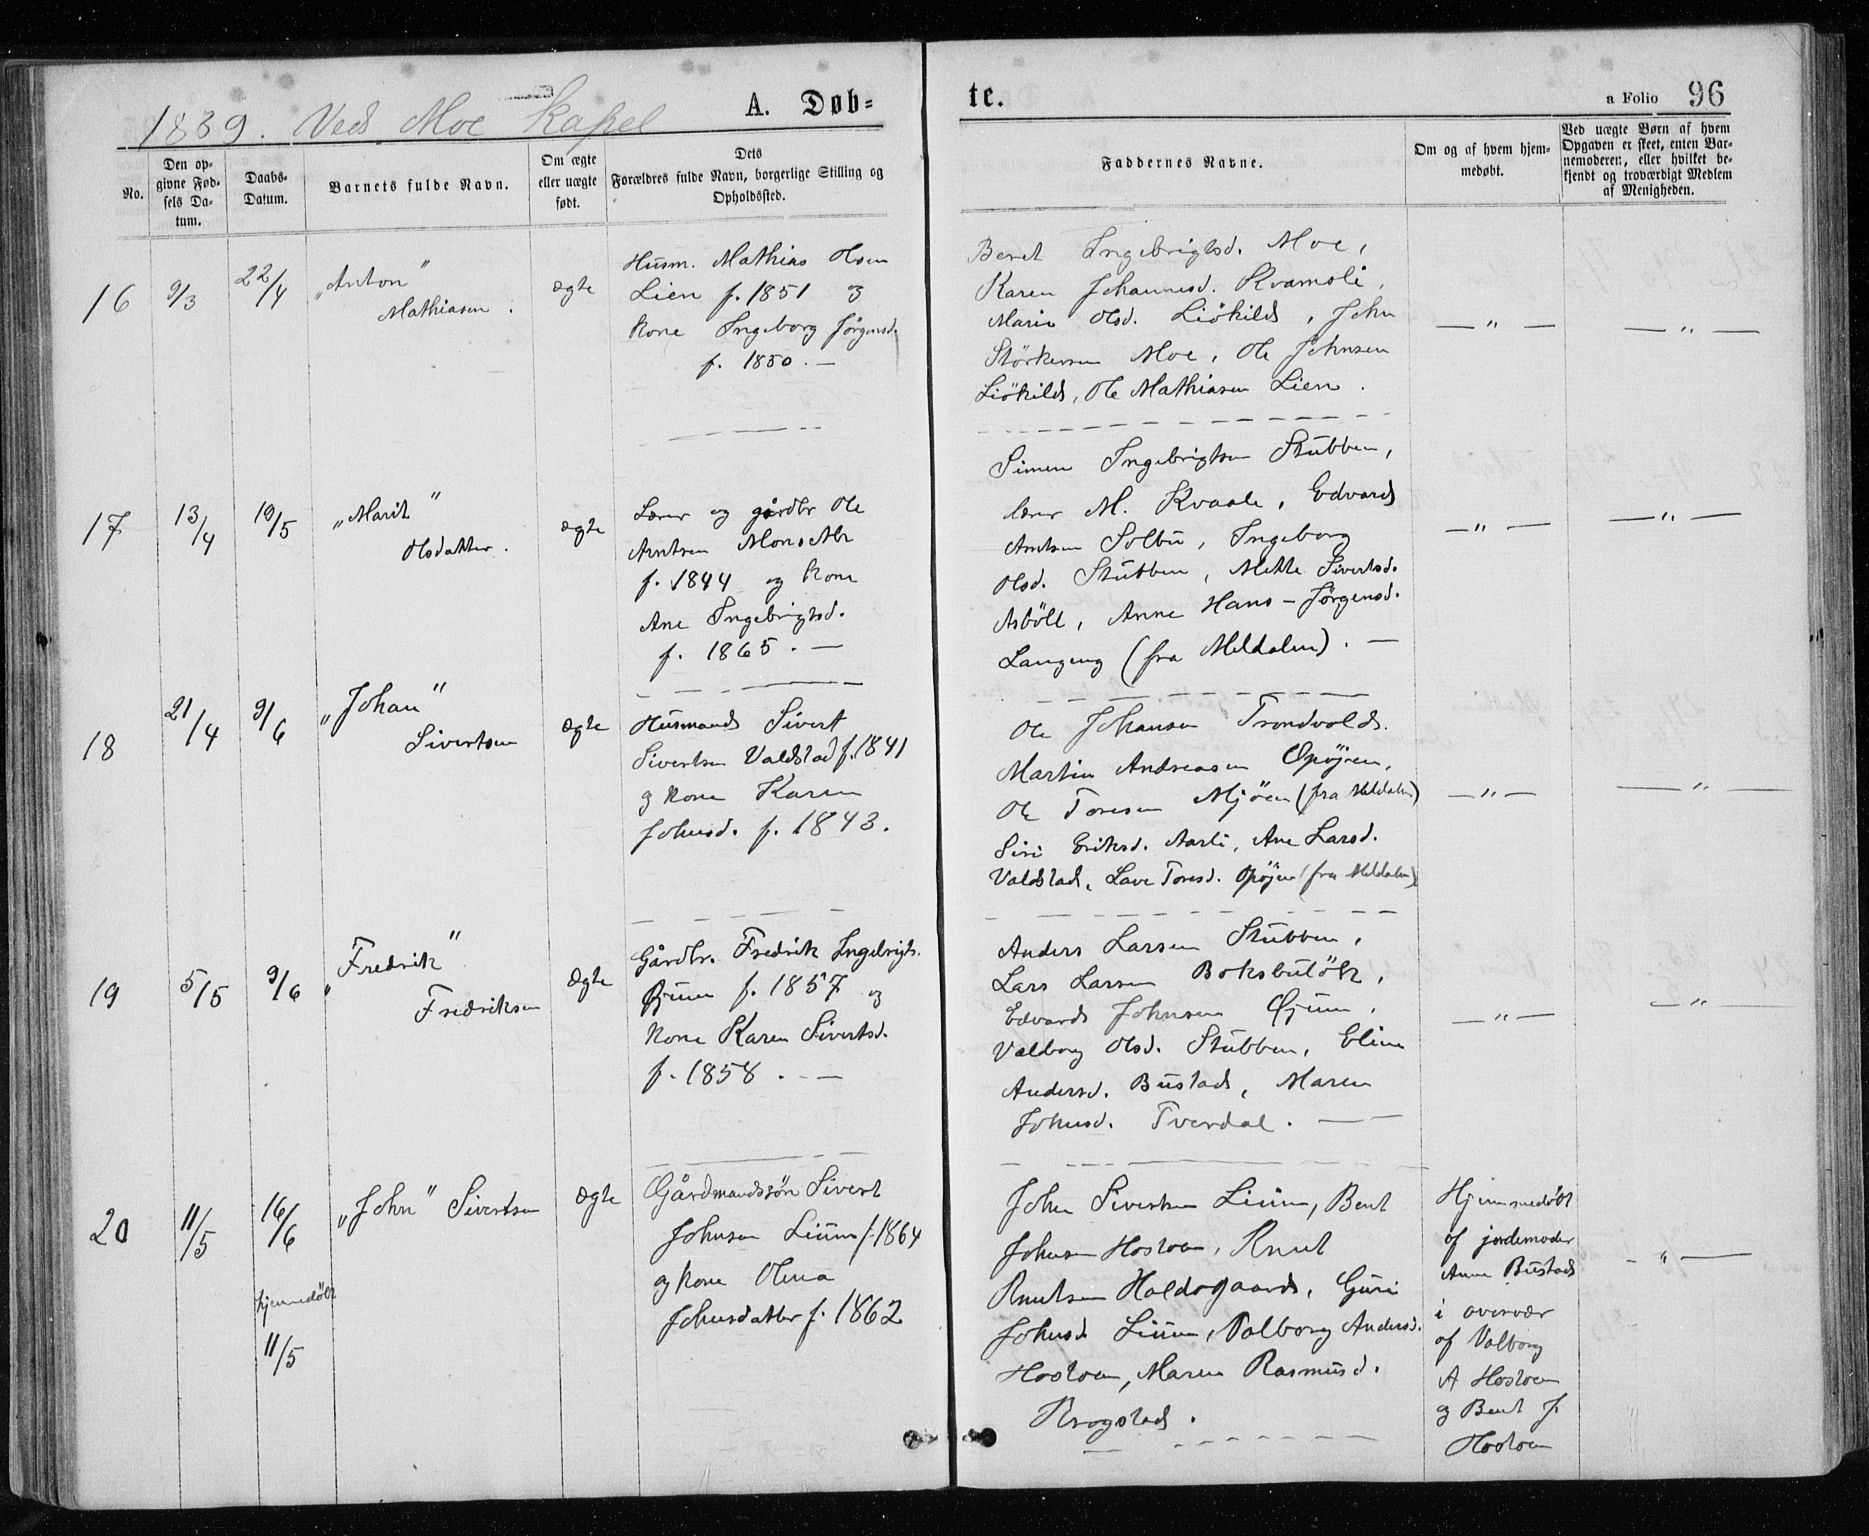 1889. Ved Moe Kapel
A. Døb=
te.
a Folio 96
No.
Den op-
givne Fød-
sels Da-
tum.
Daabs-
Datum.
Barnets fulde Navn.
Om ægte
eller uægte
født.
Dets
Forældres fulde Navn, borgerlige Stilling og
Opholdssted.
Faddernes Navne.
Om og af hvem hjem-
medøbt.
Ved uægte Børn af hvem
Opgaven er skeet, enten Bar-
nemoderen, eller hvilket be-
kjendt og troværdigt Medlem
af Menigheden.
16
9/3
22/4
"Anton"
Mathiasen.
ægte
Husm. Mathias Olsen
Lien f. 1851 og
kone Ingeborg Jørgensd.
f. 1850. —
Beret Ingebrigtsd. Moe,
Karen Johannesd. Kvamsli,
Marie Olsd. Liökild, John
Störkersen Moe, Ole Johnsen
Liökild, Ole Mathiasen Lien.
— " —
— " —
17
13/4
19/5
"Marit"
Olsdatter.
ægte
Lærer og gårdbr Ole
Arntsen
f. 1844 og kone
Ane Ingebrigtsd.
f. 1865. —
Simen Ingebrigtsen Stubben,
lærer M. Kvaale, Edvard
Arntsen Solbu, Ingeborg
Olsd. Stubben, Mette Sivertsd.
Asböll, Anne Hans-Jørgensd.
Langeng (fra Meldalen). —
— " —
— " —
18
21/4
9/6
"Johan"
Sivertsen
ægte
Husmand Sivert
Sivertsen Valdstad f. 1841
og kone Karen
Johnsd. f. 1843.
Ole Johansen Trondvold.
Martin Andreasen Opøjen,
Ole Toresen Mjöen (fra Meldalen)
Siri Eriksd. Aarli, Ane Larsd.
Valdstad, Lave Toresd. Opøjen (fra Meldalen)
— " —
— " —
19
5/5
9/6
"Fredrik"
Fredriksen
ægte
Gårdbr. Fredrik Ingebrigts.
Øjum f. 1857 og
kone Karen Sivertsd.
f. 1858. —
Anders Larsen Stubben,
Lars Larsen Boksbulökk,
Edvard Johnsen Øjum,
Valborg Olsd. Stubben, Eline
Andersd. Bustad, Maren
Johnsd. Tverdal. —
— " —
— " —
20
11/5
16/6
hjemmedöbt
11/5
"John" Sivertsen
ægte
Gårdmandssön Sivert
Johnsen Lium f. 1864
og kone Olina
Johnsdatter f. 1862
John Sivertsen Lium, Bent
Johnsen Hostoen, Knut
Knutsen Haldsgaard, Guri
Johnsd. Lium, Valborg Andersd.
Hostoen, Maren Rasmusd.
Krogstad.
Hjemmedöbt
af jordemoder
Anne Bustad
i overvær
af Valborg
A Hostoen
og Bent J.
Hostoen
— " —